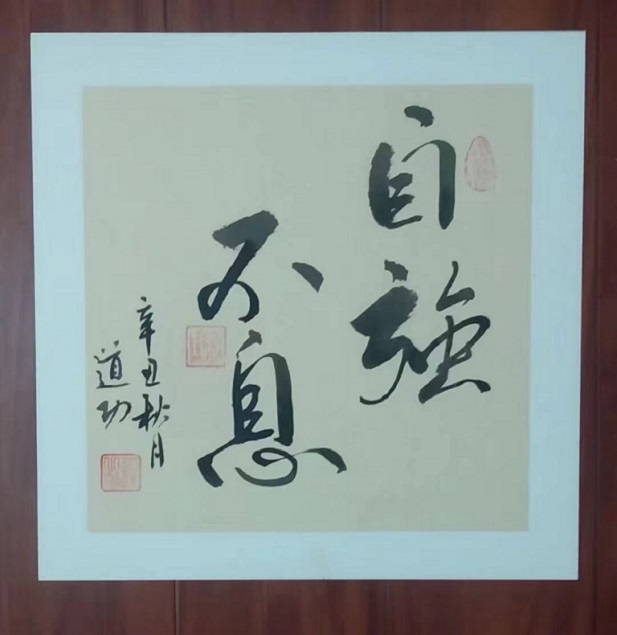 自强
不息
辛丑秋月
道功